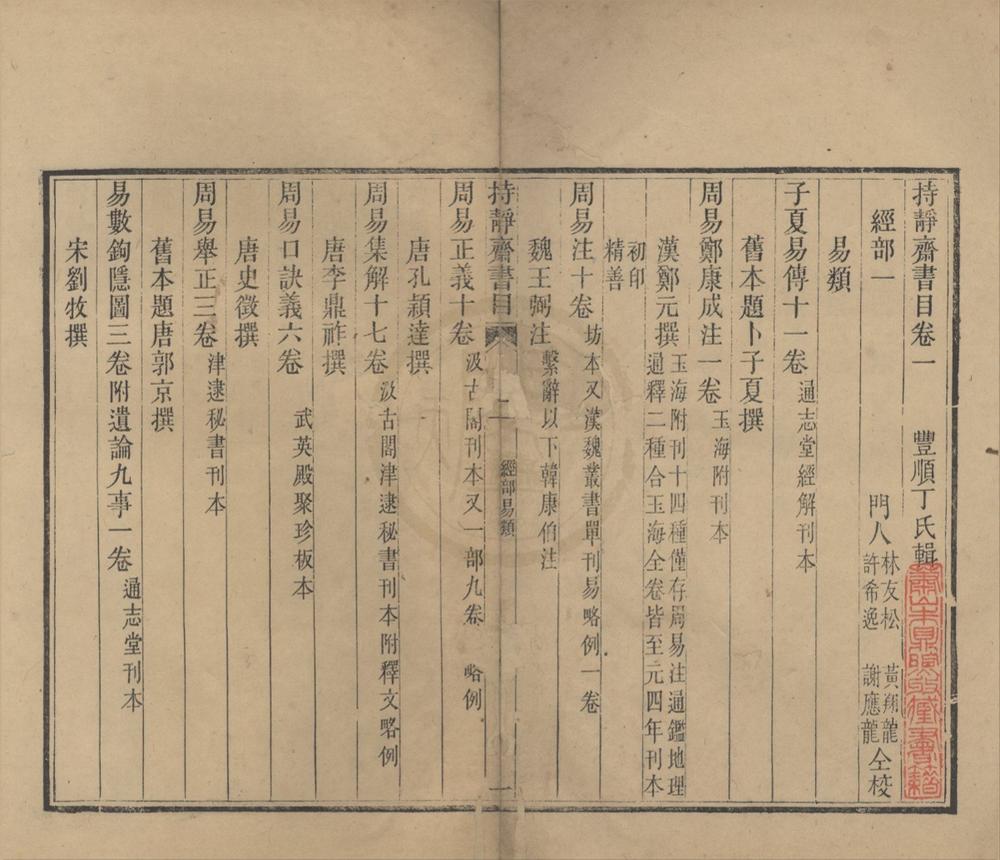 持靜齋書目卷一　豐順丁氏輯
經部一　門人林友松　黃翔龍
許希逸　謝應龍仝校
易類
子夏易傳十一卷通志堂經解刊本
舊本題卜子夏撰
周易鄭康成注一卷玉海附刊本
漢鄭元撰玉海附刊十四種僅存周易注通鑑地理
通釋二種合玉海全卷皆至元四年刊本
初印
精善
周易注十卷坊本又漢魏叢書單刊易略例一卷
魏王弼注繫辭以下韓康伯注
持靜齋書目　二　經部易類　一
周易正義十卷汲古閣刊本又一部九卷　略例
唐孔穎達撰
周易集解十七卷汲古閣津逮秘書刊本附釋文略例
唐李鼎祚撰
周易口訣義六卷　武英殿聚珍板本
唐史徵撰
周易舉正三卷津逮秘書刊本
舊本題唐郭京撰
易數鉤隱圖三卷附遺論九事一卷通志堂刊本
宋劉牧撰